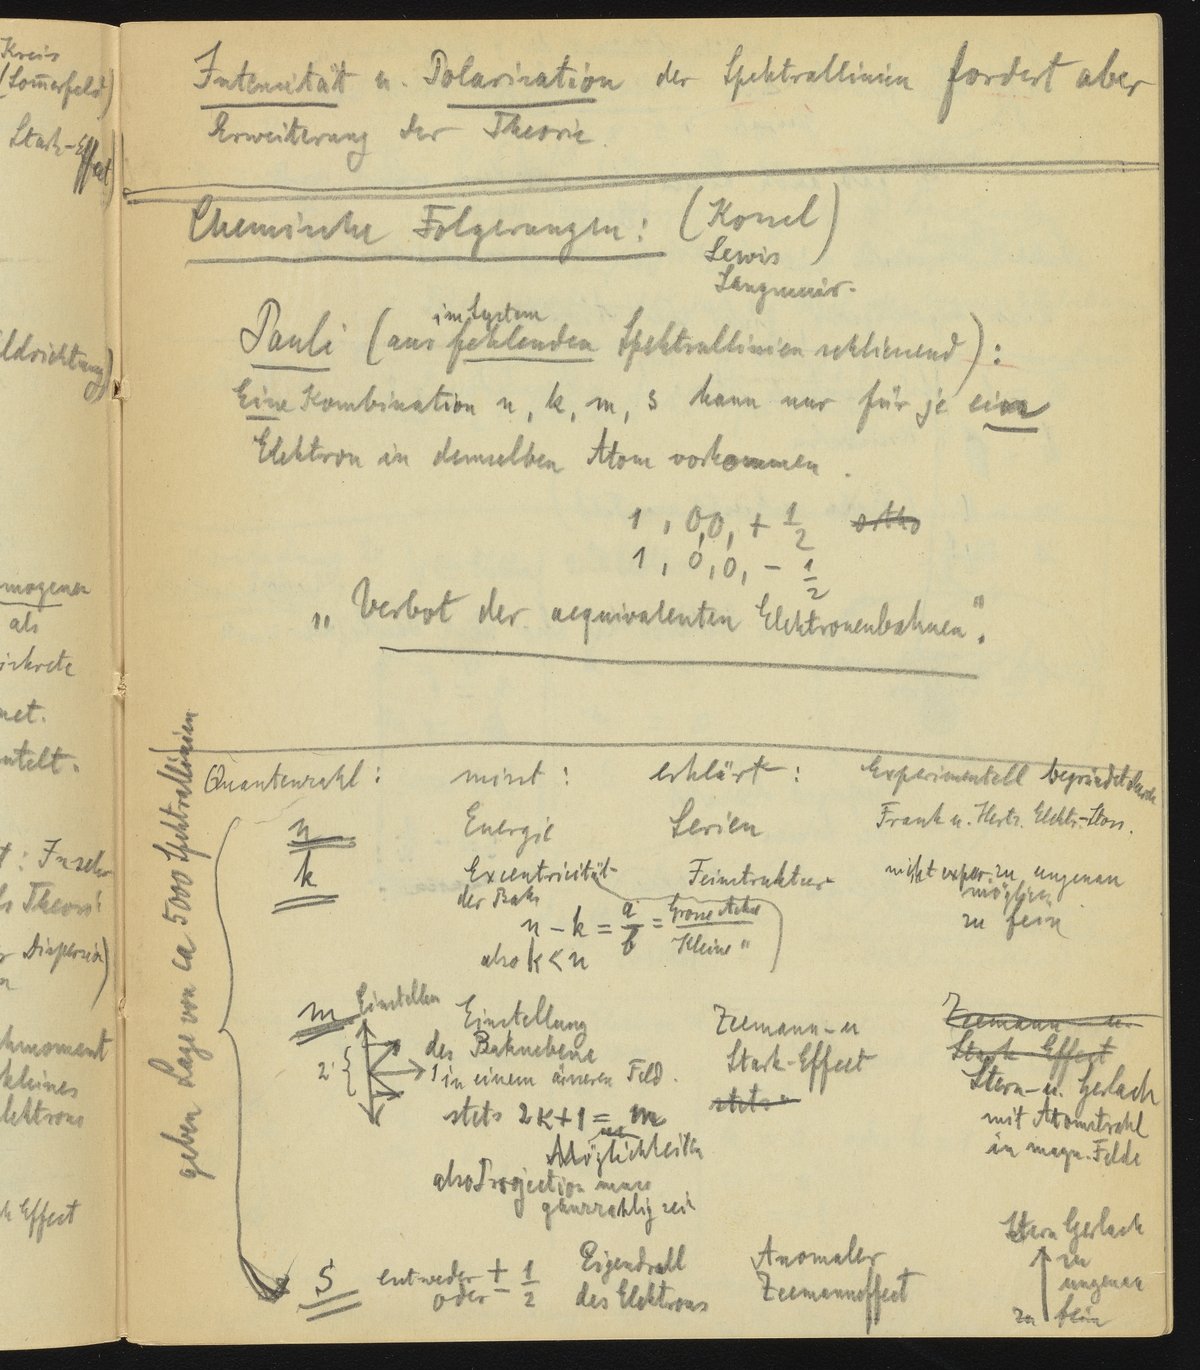 Kreis
(Som̅erfeld)
Stark-Effect)
ldrichtung)
mogenen
als
iskrete
net.
ntelt.
ls Theori
r Dispersion)
hmoment
kleines
lektrons
k Effect
Intensität u. Polarisation der Spektrallinien fordert aber
Erweiterung der Theorie.
Chemische Folgerungen: (Kossel)
Lewis
Langmuir.
im System
Pauli (aus fehlenden Spektrallinien schliessend):
Eine Kombination n, k, m, s kann nur für je ein
Elektron in demselben Atom vorkommen.
1, 0,0, + 1/2 ortho
1, 0,0, - 1/2
„Verbot der aequivalenten Elektronenbahnen".
geben Lage von ca 5000 Spektrallinien
Quantenzahl: misst: erklärt: Experimentell begründet durch
n Energie Serien Frank u. Hertz. Elektr.-Stoss.
k Excentricität Feinstruktur nicht exper. zu ungenau
der Bahn möglich
zu fein
n - k = a/b = Grosse Achse / Kleine "
also k < n
m Einstellen Einstellung Zeemann- u Zeemann- u.
der Bahnebene Stark-Effect Stark Effect
2 1 in einem äusseren Feld. stets Stern- u. Gerlach
stets 2k+1 = m mit Atomstrahl
Möglichkeiten in magn. Felde
also Projection muss
ganzzahlig sein
Stern Gerlach
s entweder + 1/2 Eigendrall Anomaler zu
oder - des Elektrons Zeemanneffect ungenau
zu fein